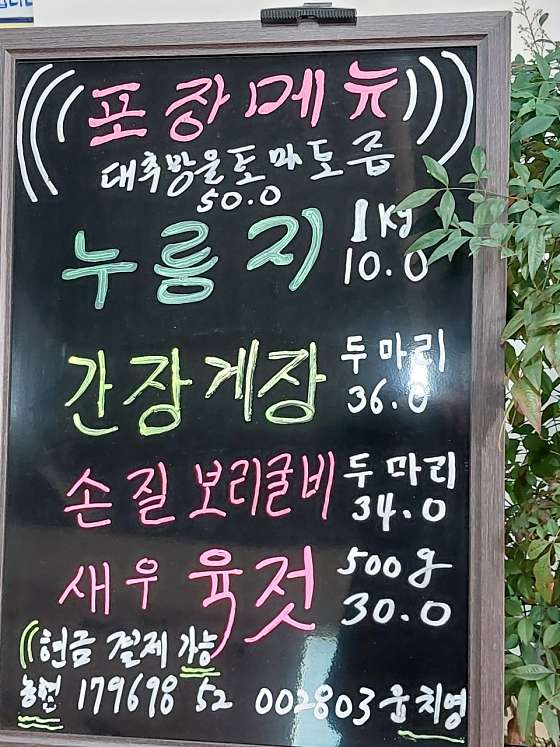 포장메뉴
대추방울토마토즙
50.0
누룽지 1Kg
10.0
간장게장 두마리
36.0
손질보리굴비 두마리
34.0
새우육젓 500g
30.0
현금 결제 가능
농협 179698 52 002803 윤치영